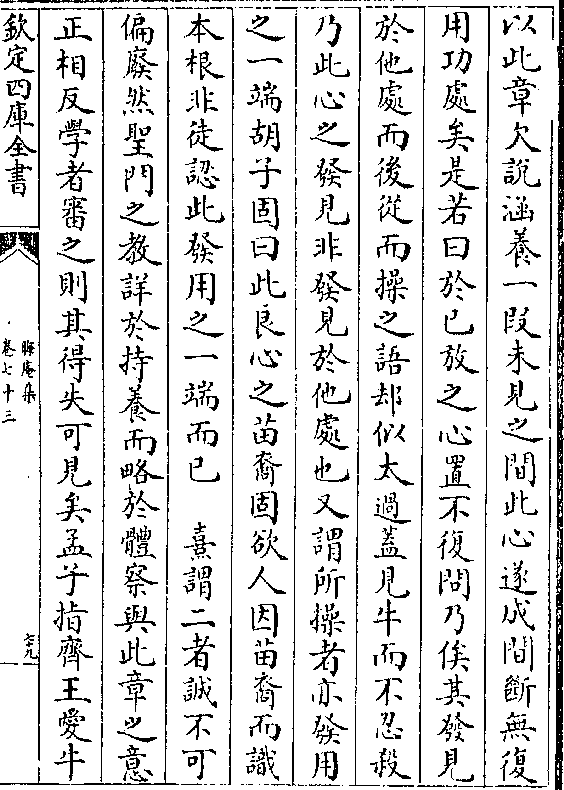 以此章欠說涵養一段未見之間此心遂成間斷無復
用功處矣是若曰於已放之心置不復問乃俟其發見
於他處而後從而操之語却似太過蓋見牛而不忍殺
乃此心之發見非發見於他處也又謂所操者亦發用
之一端胡子固曰此良心之苗裔固欲人因苗裔而識
本根非徒認此發用之一端而已　熹謂二者誠不可
偏廢然聖門之教詳於持養而略於體察與此章之意
正相反學者審之則其得失可見矣孟子指齊王愛牛
欽定四庫全書
晦庵集
卷七十三